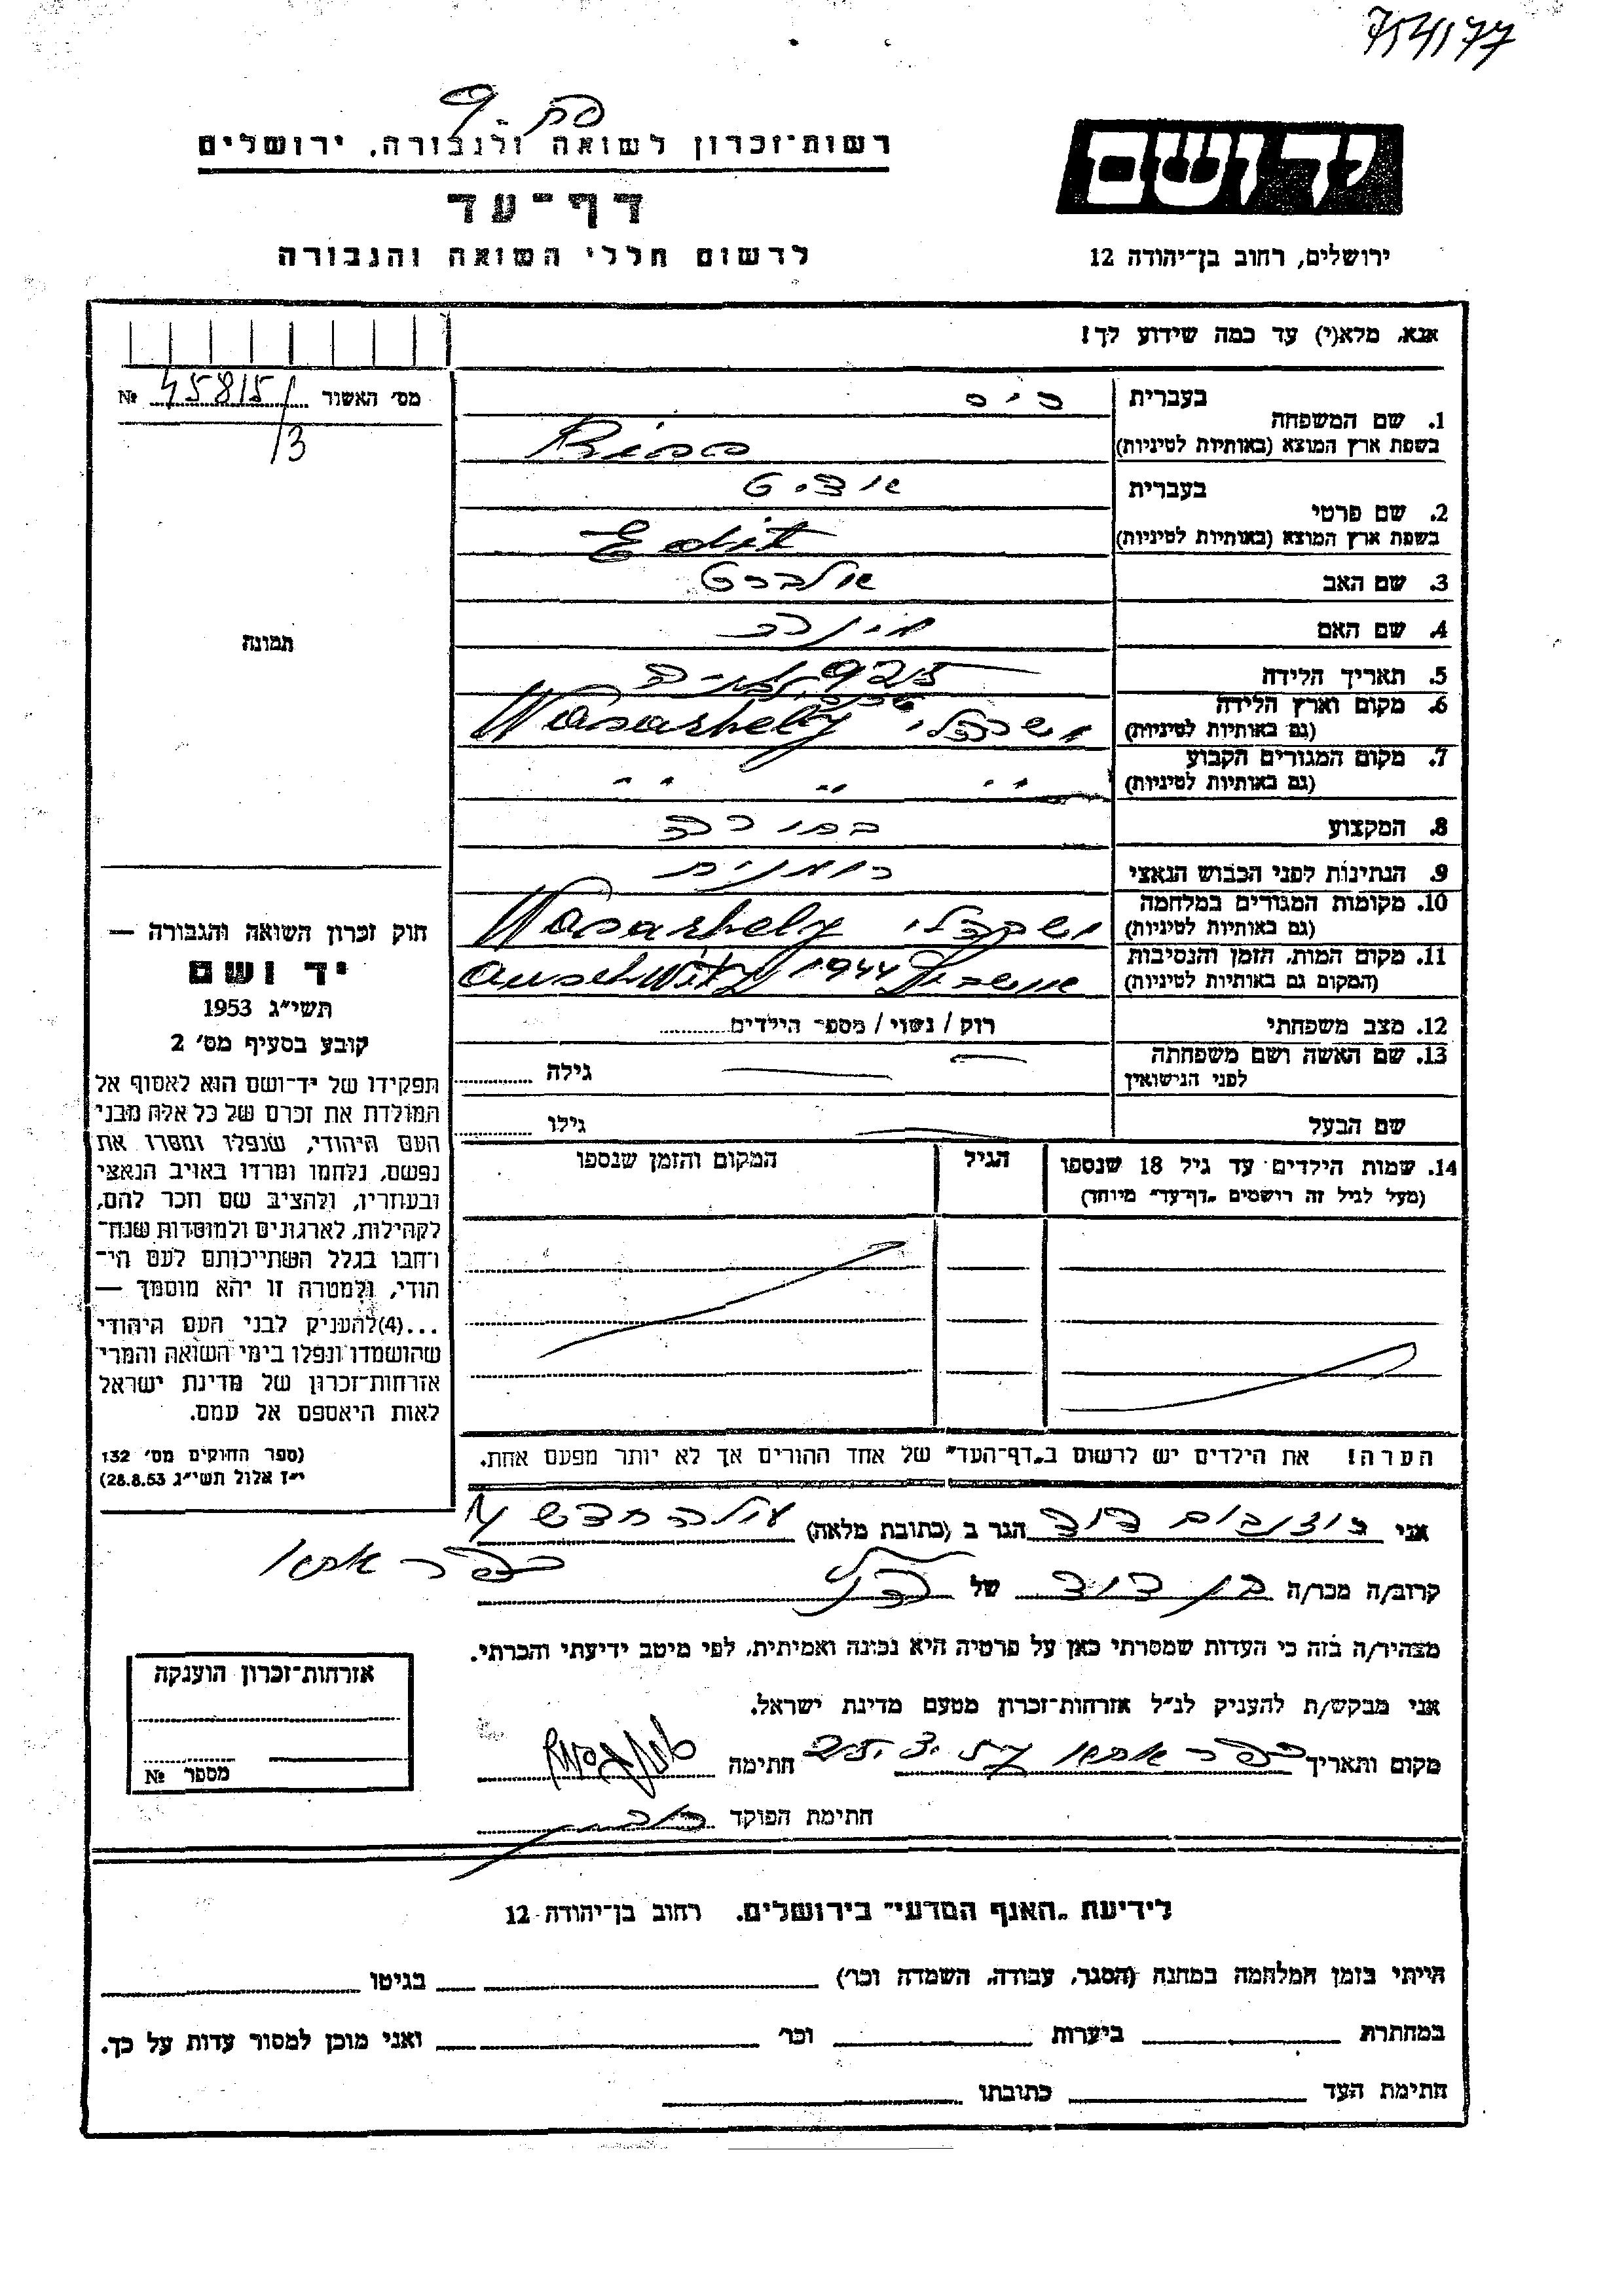 רשות־זכרון לשואה ולגבורה, ירושלים
יד ושם
דף־עד
לרשום חללי השואה והגבורה
ירושלים, רחוב בן־יהודה 12
אנא, מלא(י) עד כמה שידוע לך!
מס' האשור 45815/3 №
בעברית
1. שם המשפחה
בשפת ארץ המוצא (באותיות לטיניות)
בעברית
2. שם פרטי אודיט
בשפת ארץ המוצא (באותיות לטיניות) Edit
3. שם האב אלברט
4. שם האם
5. תאריך הלידה
6. מקום וארץ הלידה Wasarhely
(גם באותיות לטיניות)
7. מקום המגורים הקבוע
(גם באותיות לטיניות) " " "
8. המקצוע
9. הנתינות לפני הכבוש הנאצי רומנית
10. מקומות המגורים במלחמה Wasarhely
(גם באותיות לטיניות)
11. מקום המות, הזמן והנסיבות 1944 Auschwitz
(המקום גם באותיות לטיניות)
12. מצב משפחתי רוק / נשוי / מספר הילדים
13. שם האשה ושם משפחתה
לפני הנישואין גילה
שם הבעל גילו
14. שמות הילדים עד גיל 18 שנספו הגיל המקום והזמן שנספו
(מעל לגיל זה רושמים „דף־עד" מיוחד)
הערה! את הילדים יש לרשום ב„דף־העד" של אחד ההורים אך לא יותר מפעם אחת.
תמונה
חוק זכרון השואה והגבורה —
יד ושם
תשי"ג 1953
קובע בסעיף מס' 2
תפקידו של יד־ושם הוא לאסוף אל
המולדת את זכרם של כל אלה מבני
העם היהודי, שנפלו ומסרו את
נפשם, נלחמו ומרדו באויב הנאצי
ובעוזריו, ולהציב שם וזכר להם,
לקהילות, לארגונים ולמוסדות שנח־
רבו בגלל השתייכותם לעם הי־
הודי, ולמטרה זו יהא מוסמך —
...(4) להעניק לבני העם היהודי
שהושמדו ונפלו בימי השואה והמרי
אזרחות־זכרון של מדינת ישראל
לאות היאספם אל עמם.
(ספר החוקים מס' 132
י"ז אלול תשי"ג 28.8.53)
אני דוד הגר ב (כתובת מלאה) עולה חדש
כפר אתא
קרוב/ה מכר/ה בן דוד של
מצהיר/ה בזה כי העדות שמסרתי כאן על פרטיה היא נכונה ואמיתית, לפי מיטב ידיעתי והכרתי.
אני מבקש/ת להעניק לנ"ל אזרחות־זכרון מטעם מדינת ישראל.
מקום ותאריך כפר אתא חתימה
חתימת הפוקד
אזרחות־זכרון הוענקה
מספר №
לידיעת „האגף המדעי" בירושלים. רחוב בן־יהודה 12
הייתי בזמן המלחמה במחנה (הסגר, עבודה, השמדה וכר') בגיטו
במחתרת ביערות וכר' ואני מוכן למסור עדות על כך.
חתימת העד כתובתו